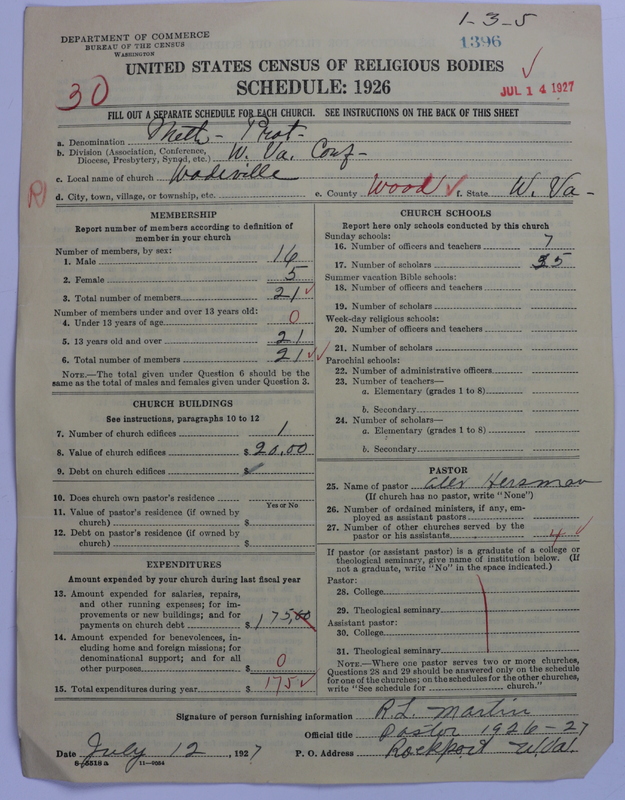 1-3-5
DEPARTMENT OF COMMERCE
BUREAU OF THE CENSUS
WASHINGTON
1396
UNITED STATES CENSUS OF RELIGIOUS BODIES
SCHEDULE: 1926
30
JUL 14 1927
FILL OUT A SEPARATE SCHEDULE FOR EACH CHURCH. SEE INSTRUCTIONS ON THE BACK OF THIS SHEET
a. Denomination Meth - Prot -
b. Division (Association, Conference, Diocese, Presbytery, Synod, etc.) W. Va. Conf -
c. Local name of church Wadeville
R
d. City, town, village, or township, etc. e. County Wood f. State W. Va -
MEMBERSHIP
Report number of members according to definition of
member in your church
Number of members, by sex:
1. Male 16
2. Female 5
3. Total number of members 21
Number of members under and over 13 years old:
4. Under 13 years of age 0
5. 13 years old and over 21
6. Total number of members 21
NOTE.—The total given under Question 6 should be
the same as the total of males and females given under Question 3.
CHURCH BUILDINGS
See instructions, paragraphs 10 to 12
7. Number of church edifices 1
8. Value of church edifices $ 20.00
9. Debt on church edifices $
10. Does church own pastor's residence
Yes or No
11. Value of pastor's residence (if owned by
church) $
12. Debt on pastor's residence (if owned by
church) $
EXPENDITURES
Amount expended by your church during last fiscal year
13. Amount expended for salaries, repairs,
and other running expenses; for im-
provements or new buildings; and for
payments on church debt $ 175,00
14. Amount expended for benevolences, in-
cluding home and foreign missions; for
denominational support; and for all
other purposes $ 0
15. Total expenditures during year $ 175
CHURCH SCHOOLS
Report here only schools conducted by this church
Sunday schools:
16. Number of officers and teachers 7
17. Number of scholars 35
Summer vacation Bible schools:
18. Number of officers and teachers
19. Number of scholars
Week-day religious schools:
20. Number of officers and teachers
21. Number of scholars
Parochial schools:
22. Number of administrative officers
23. Number of teachers—
a. Elementary (grades 1 to 8)
b. Secondary
24. Number of scholars—
a. Elementary (grades 1 to 8)
b. Secondary
PASTOR
25. Name of pastor Alex Hersman
(If church has no pastor, write "None")
26. Number of ordained ministers, if any, em-
ployed as assistant pastors
27. Number of other churches served by the
pastor or his assistants 4
If pastor (or assistant pastor) is a graduate of a college or
theological seminary, give name of institution below. (If
not a graduate, write "No" in the space indicated.)
Pastor:
28. College
29. Theological seminary
Assistant pastor:
30. College
31. Theological seminary
NOTE.—Where one pastor serves two or more churches,
Questions 28 and 29 should be answered only on the schedule
for one of the churches; on the schedules for the other churches,
write "See schedule for church."
Signature of person furnishing information R.L. Martin
Official title Pastor 1926-27
Date July 12, 1927 P. O. Address Rockport W.Va.
8-5518a 11-9054